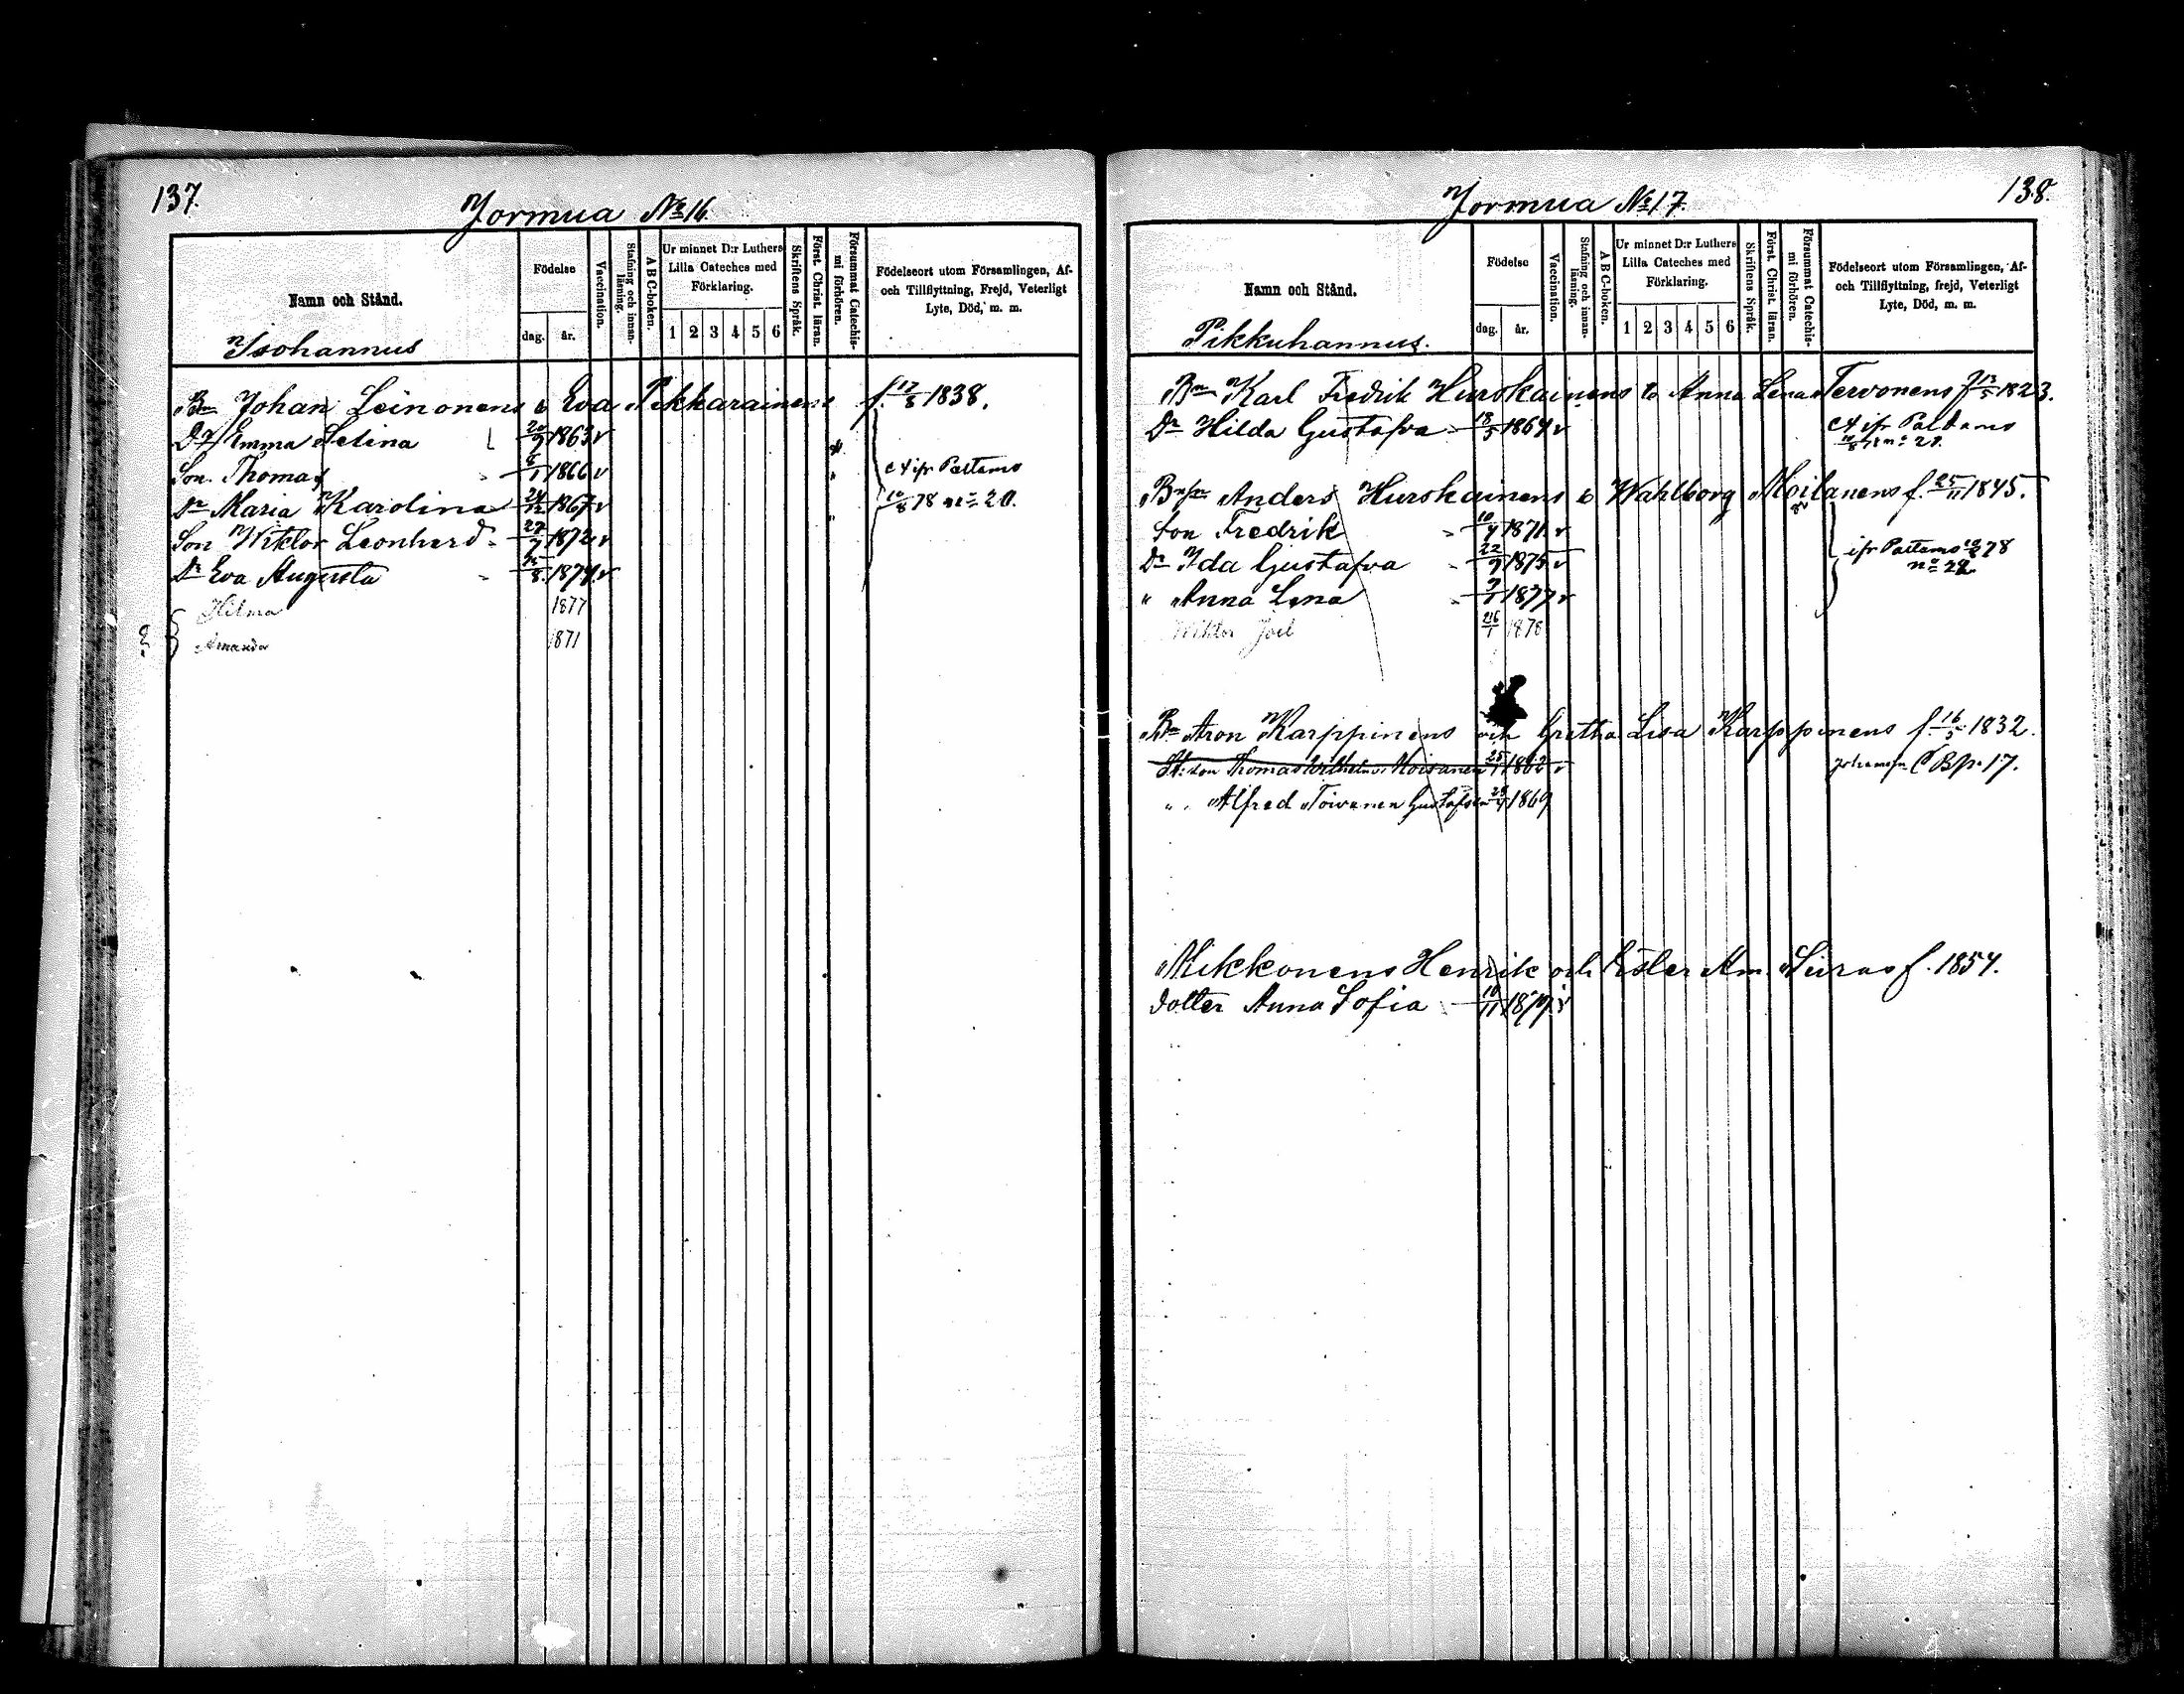 137.
Jormua No 16.
Namn och Stånd.
Födelse
dag. år.
Vaccination.
Stafning och innan-läsning.
A B C-boken.
Ur minnet D:r Luthers Lilla Cateches med Förklaring.
1 2 3 4 5 6
Skriftens Språk.
Först. Christ. läran.
Försummat Catechis-mi förhören.
Födelseort utom Församlingen, Af-
och Tillflyttning, Frejd, Veterligt
Lyte, Död, m. m.
Isohannus
Bn Johan Leinonens o Eva Pikkarainens f. 17/8 1838.
Dr Emma Selina 1863 v
Son. Thomas 1866 v
Dr Maria Karolina 24/12 1867 v
Son Wiktor Leonhard 27/7 1872 v
Dr Eva Augusta 1874 v
ifr Paltamo
10/8 78 no 20.
Hilma 1877
Amanda 1871
138.
Jormua No 17.
Namn och Stånd.
Födelse
dag. år.
Vaccination.
Stafning och innan-läsning.
A B C-boken.
Ur minnet D:r Luthers Lilla Cateches med Förklaring.
1 2 3 4 5 6
Skriftens Språk.
Först. Christ. läran.
Försummat Catechis-mi förhören.
Födelseort utom Församlingen, Af-
och Tillflyttning, frejd, Veterligt
Lyte, Död, m. m.
Pikkuhannus.
Bn Karl Fredrik Hurskainens o Anna Lena Tervonens f 13/5 1823.
Dr Hilda Gustafva 1864 v ifr Paltamo
Anders Hurskainens o Wahlborg Moilanens f. 25/11 1845.
Son Fredrik 1871 v
Dr Ida Gustafva 22/9 1875 v ifr Paltamo 10/8 78
" Anna Lena 1877 v
Wiktor Joel 26/1 1878
Bn Aron Karppinens och Gretha Lisa Karppinens f. 16/5 1832.
Thomas Wilhelm Moisanen 25/1 1862 v C B p. 17.
" Alfred Toivanen Gustafson 1869
Mikkonens Henrik och Ester Am. Seiras f. 1854.
dotter Anna Sofia 10/11 1879 v